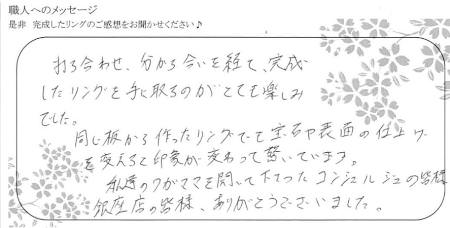 職人へのメッセージ
是非 完成したリングのご感想をお聞かせください♪
打ち合わせ、分かち合いを経て、完成
したリングを手に取るのがとても楽しみ
でした。
同じ板から作ったリングでも宝石や表面の仕上げ
を変えると印象が変わって驚いています。
私達のワガママを聞いて下さったコンシェルジュの皆様
銀座店の皆様、ありがとうございました。